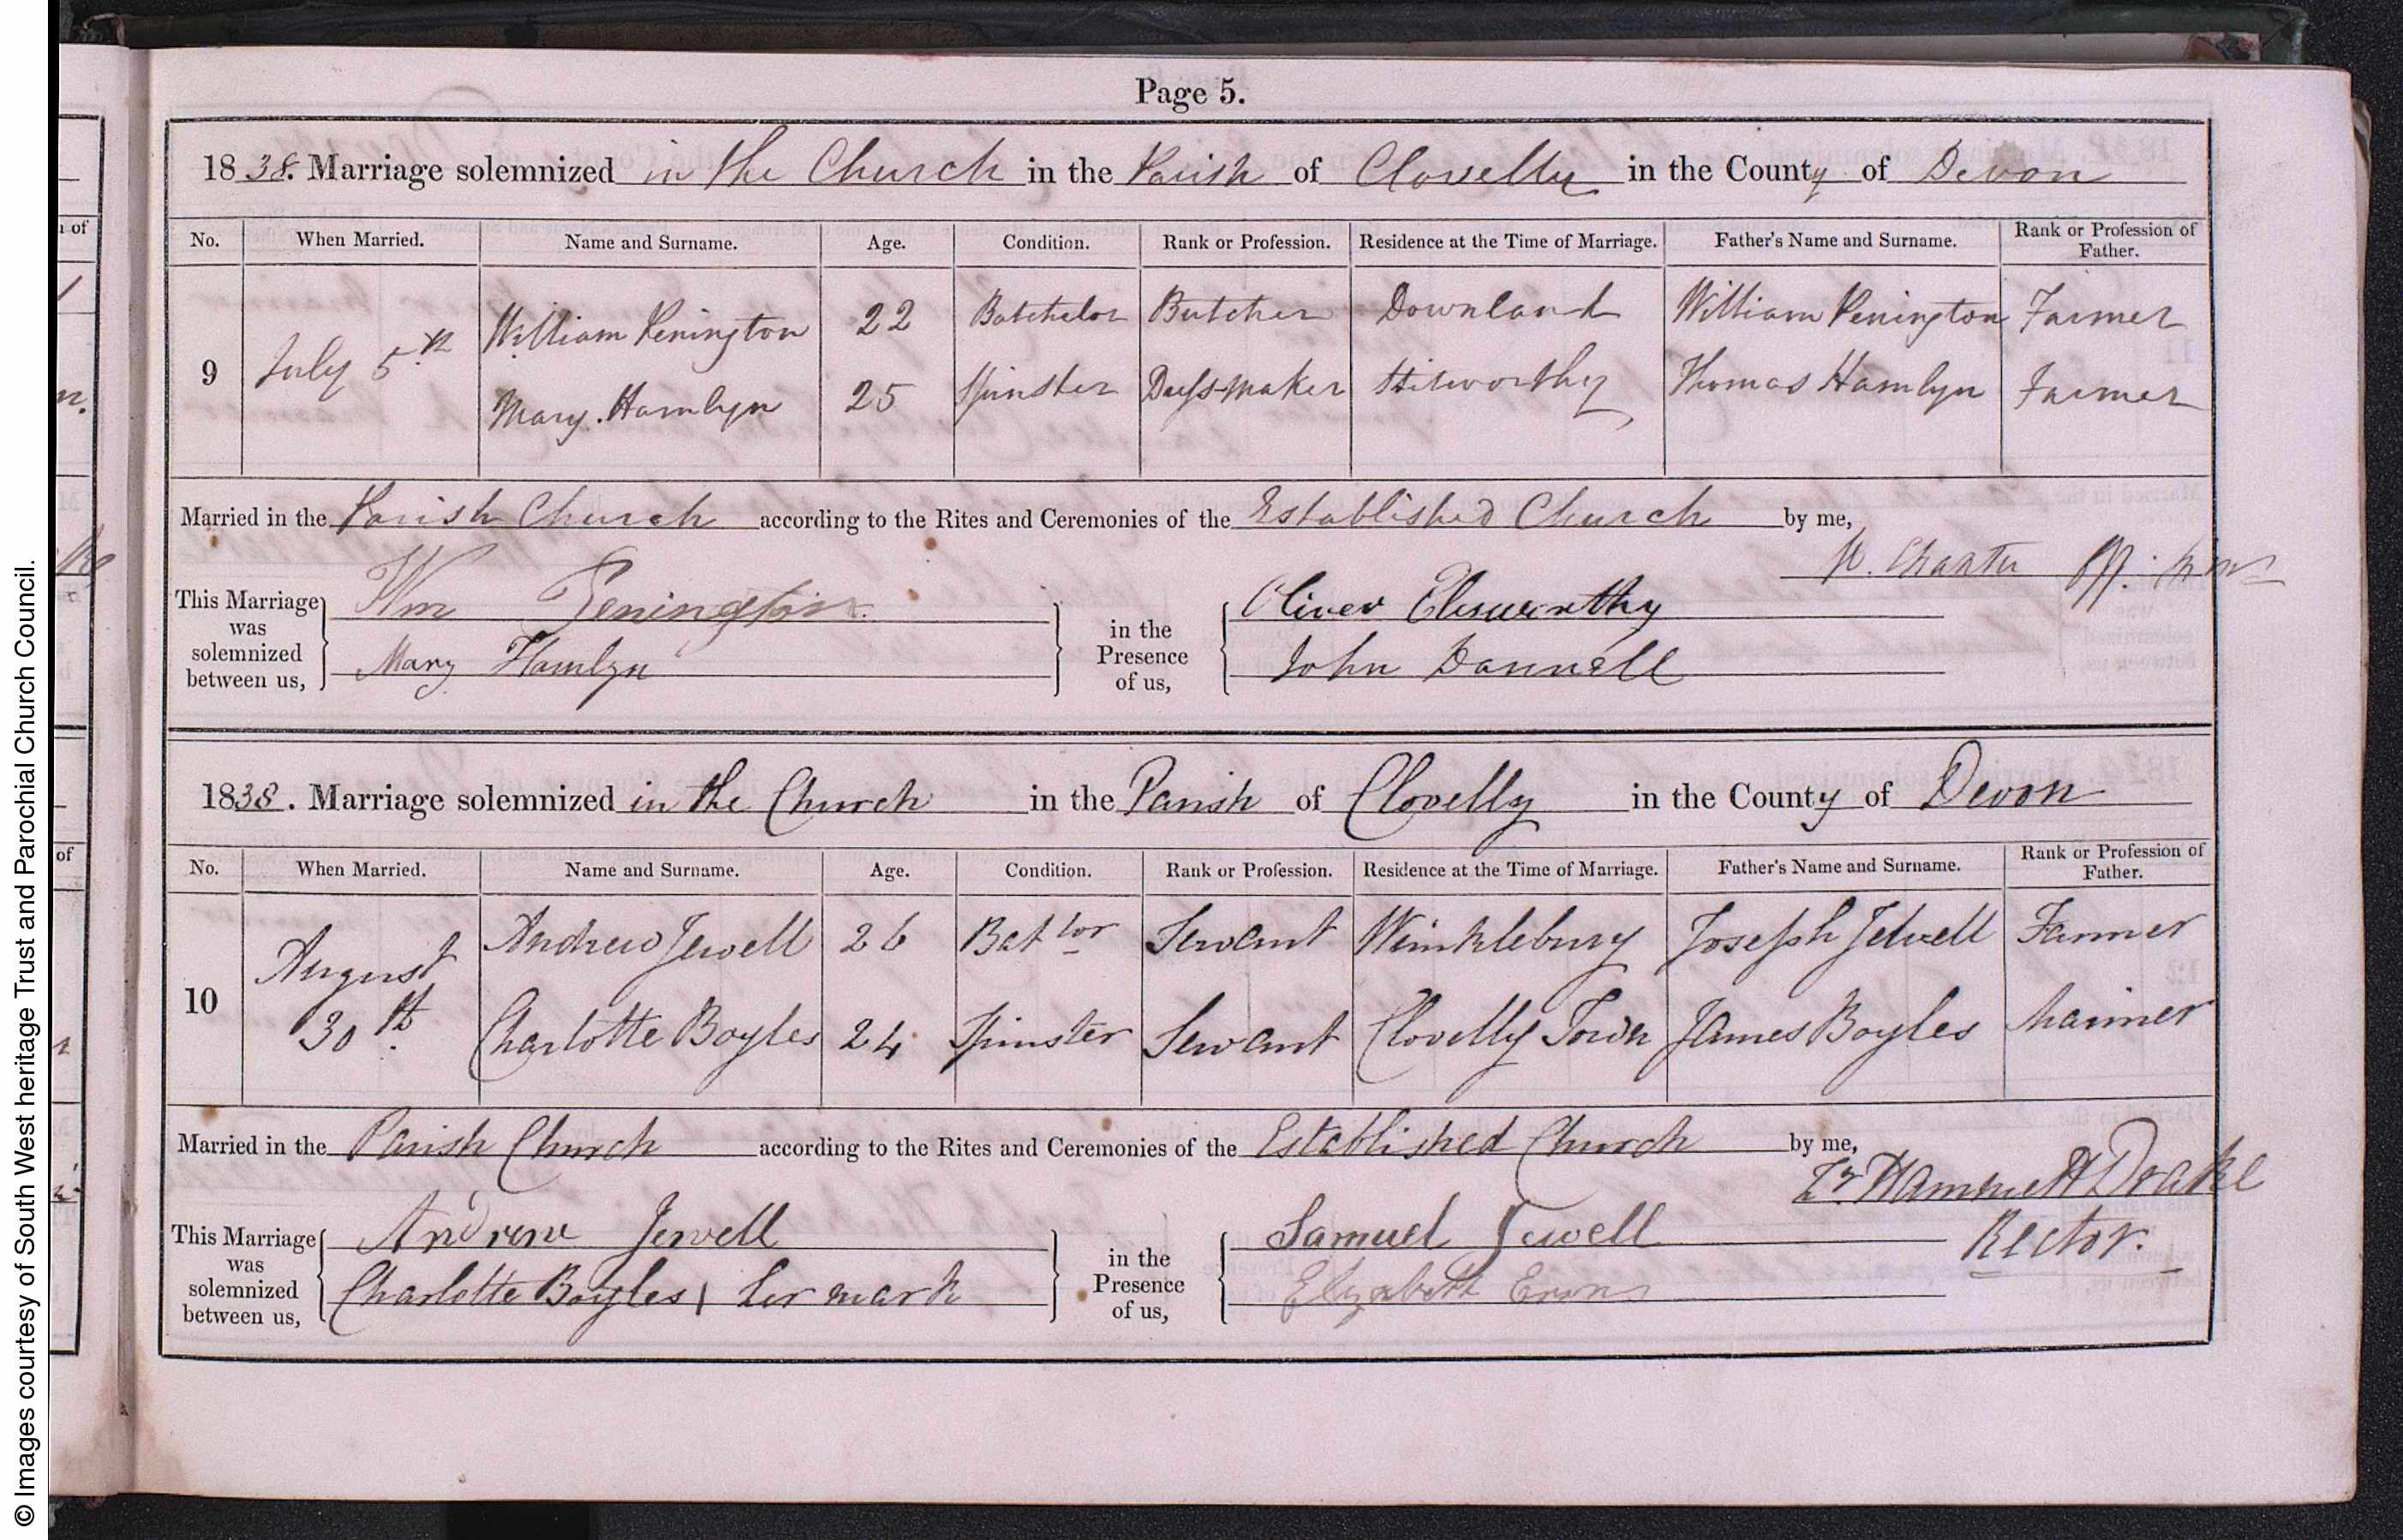 Page 5.
1838. Marriage solemnized in the Church in the Parish of Clovelly in the County of Devon
No. When Married. Name and Surname. Age. Condition. Rank or Profession. Residence at the Time of Marriage. Father's Name and Surname. Rank or Profession of Father.
9 July 5th William Penington 22 Batchelor Butcher Downland William Penington Farmer
Mary Hamlyn 25 Spinster Dress-Maker Thomas Hamlyn Farmer
Married in the Parish Church according to the Rites and Ceremonies of the Established Church by me,
W. Chanter
This Marriage was solemnized between us, Wm Penington in the Presence of us, Oliver Elsworthy
Mary Hamlyn John Dannell
1838. Marriage solemnized in the Church in the Parish of Clovelly in the County of Devon
No. When Married. Name and Surname. Age. Condition. Rank or Profession. Residence at the Time of Marriage. Father's Name and Surname. Rank or Profession of Father.
10 August 30th Andrew Jewell 26 Batlor Servant Winklebury Joseph Jewell Farmer
Charlotte Boyles 24 Spinster Servant Clovelly Town James Boyles Mariner
Married in the Parish Church according to the Rites and Ceremonies of the Established Church by me,
Hammett Drake
Rector.
This Marriage was solemnized between us, Andrew Jewell in the Presence of us, Samuel Jewell
Charlotte Boyles | her mark Elizabeth Evans
© Images courtesy of South West heritage Trust and Parochial Church Council.